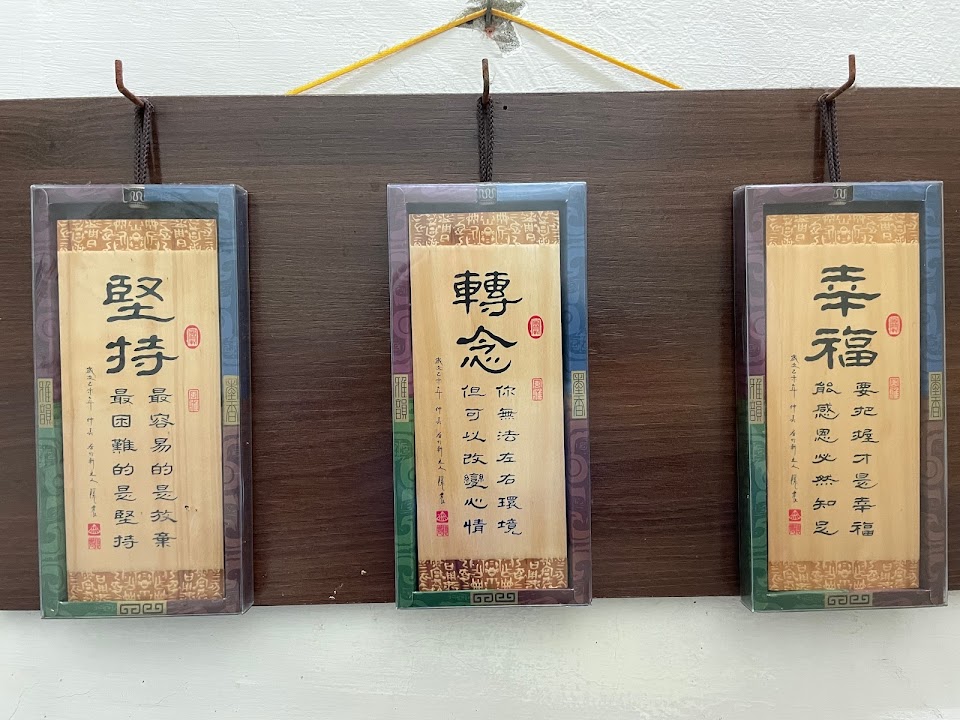 堅持
最容易的是放棄
最困難的是堅持
雅韻
墨香
轉念
你無法左右環境
但可以改變心情
雅韻
墨香
幸福
要把握才是幸福
能感恩必然知足
雅韻
墨香